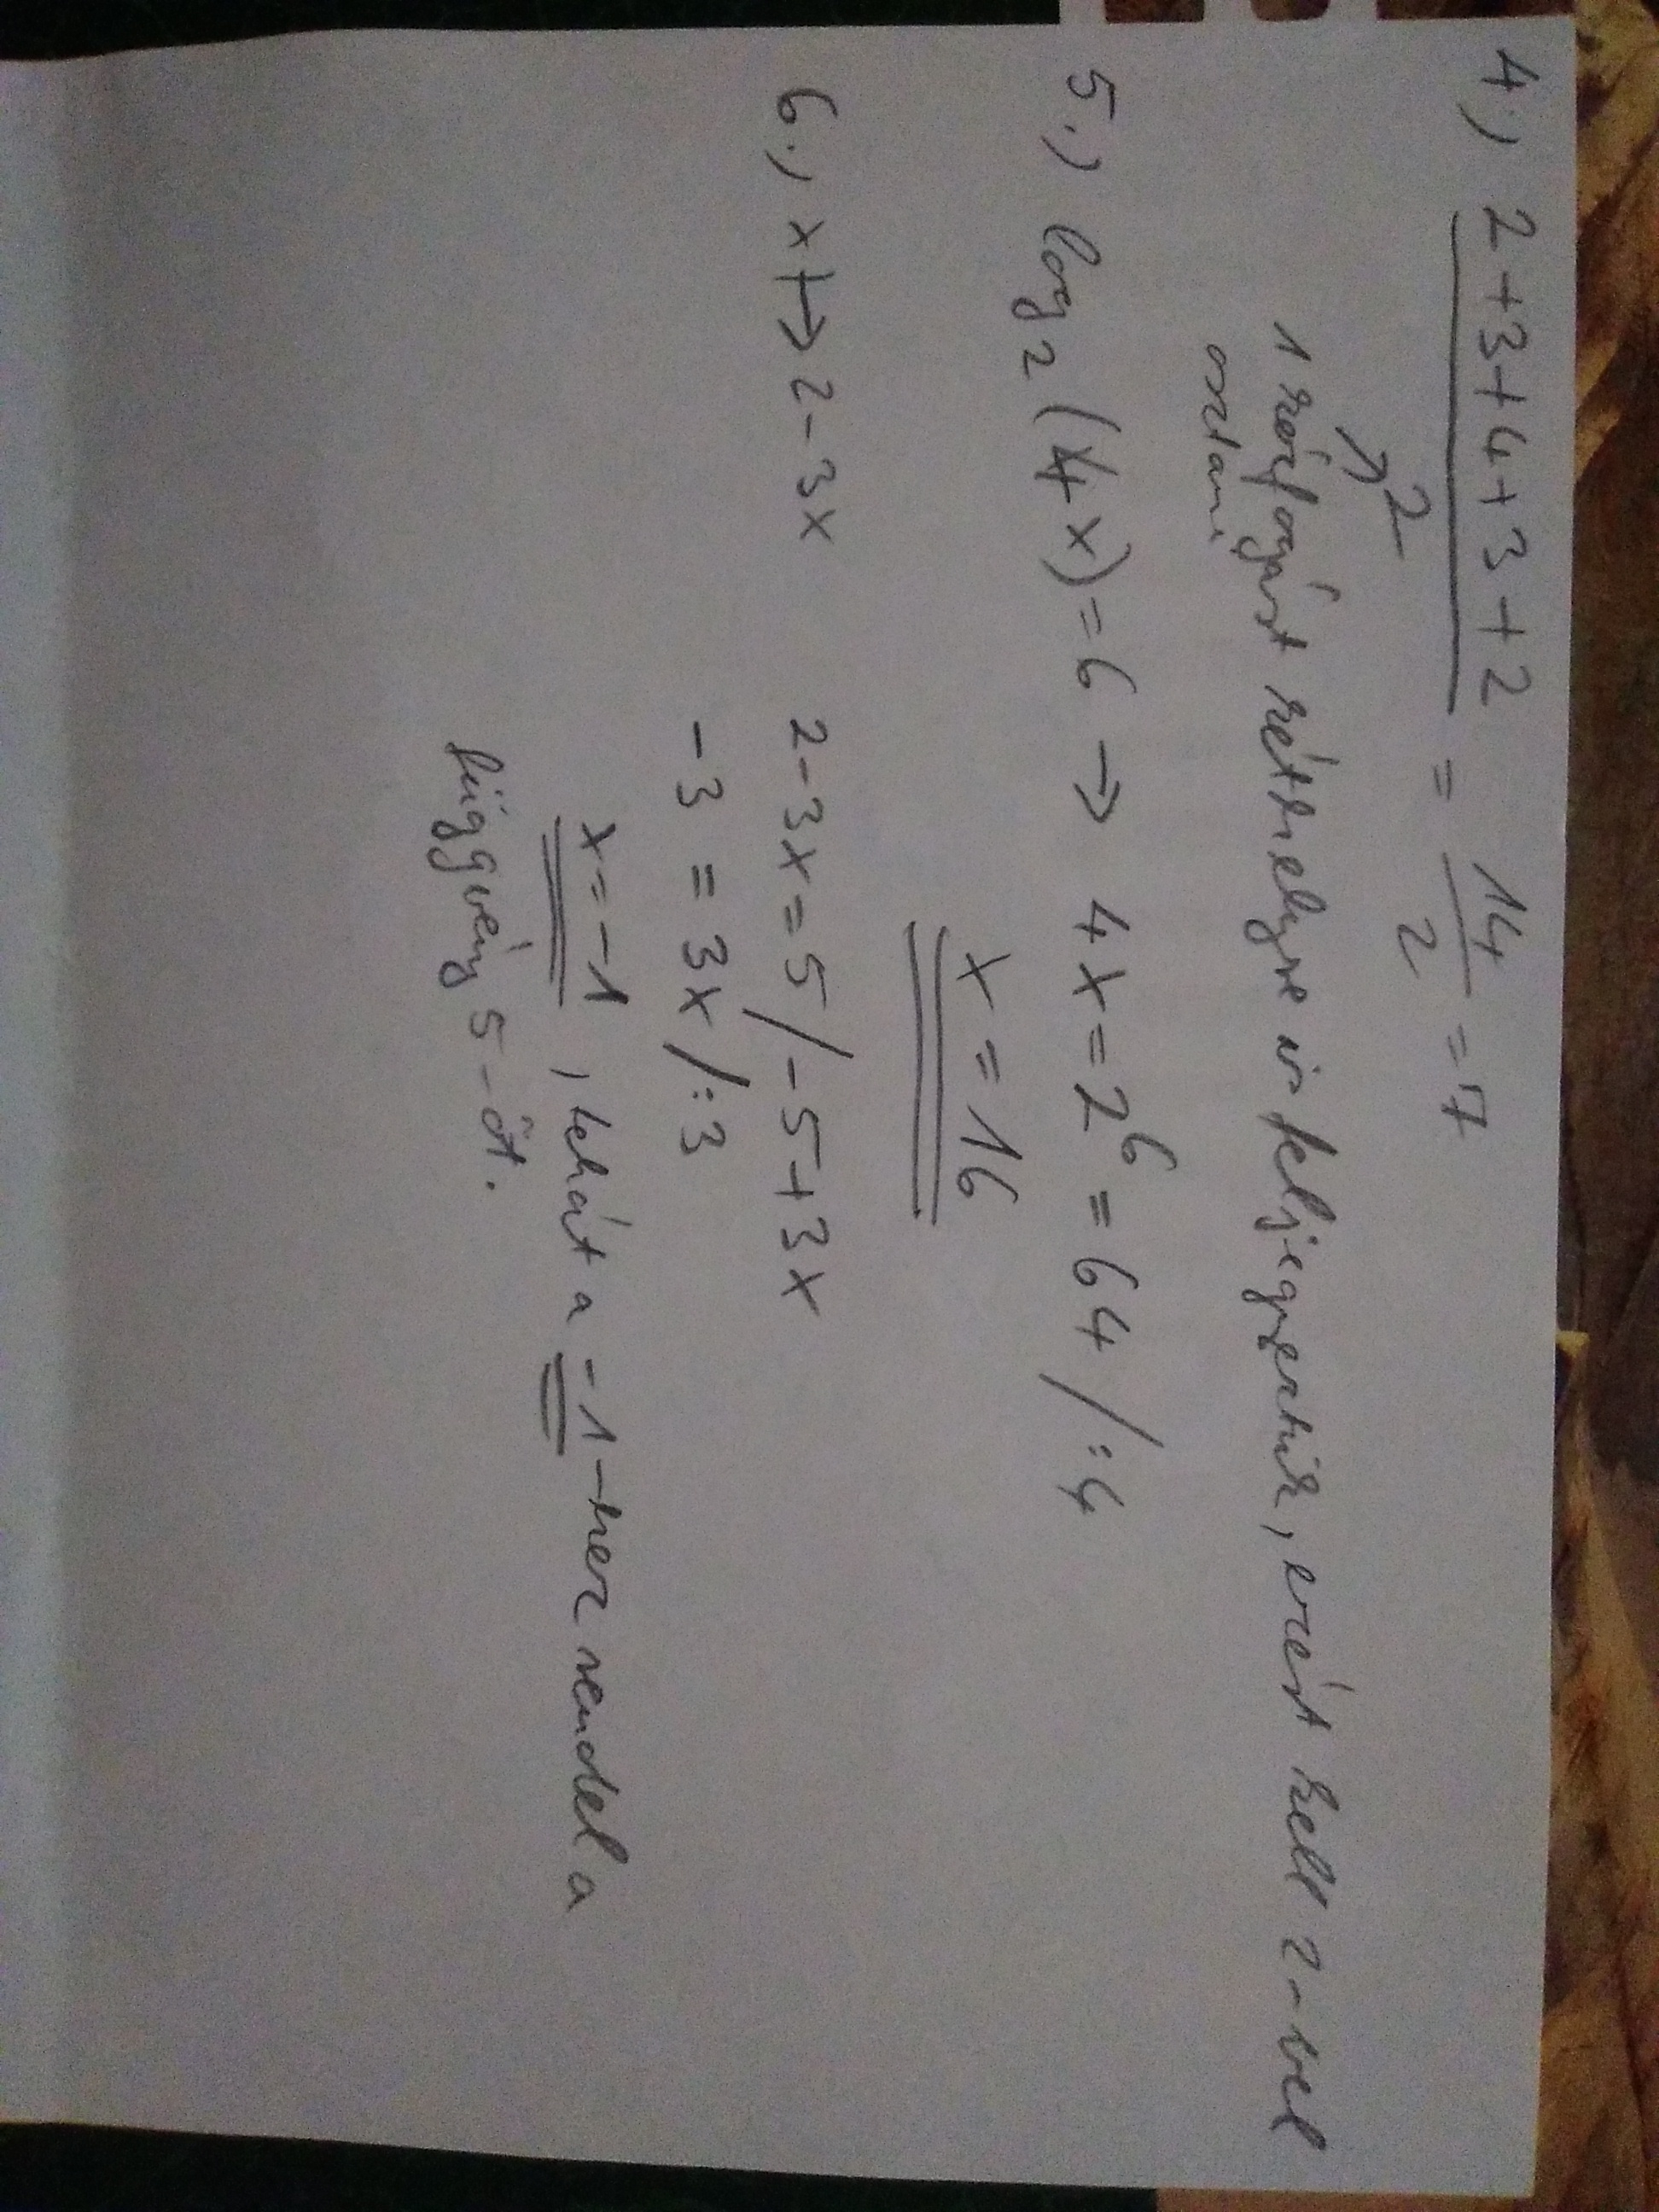 4.) 2+3+4+3+2 / 2 = 14/2 = 7
1 kézfogást kétszelyre is feljegyeztük, ezért kell 2-vel
osztani
5.) log₂(4x)=6 → 4x=2⁶=64 /:4
x=16
6.) x↦2-3x 2-3x=5 /-5+3x
-3=3x /:3
x=-1, tehát a -1-hez rendel a
függvény 5-öt.